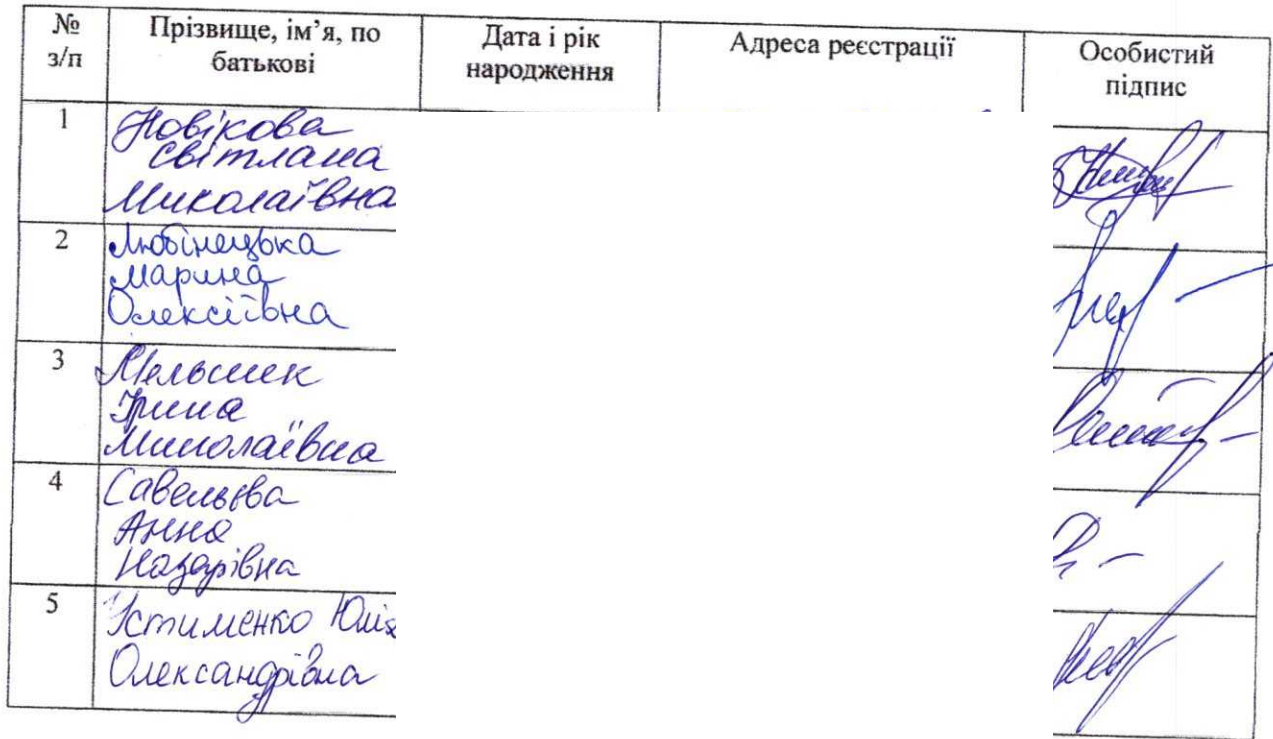 № з/п Прізвище, ім’я, по батькові Дата і рік народження Адреса реєстрації Особистий підпис
1 Новікова
Світлана
Миколаївна
2 Любінецька
Марина
Олексіївна
3 Мельник
Ірина
Миколаївна
4 Савельєва
Анна
Назарівна
5 Устименко Юлія
Олександрівна